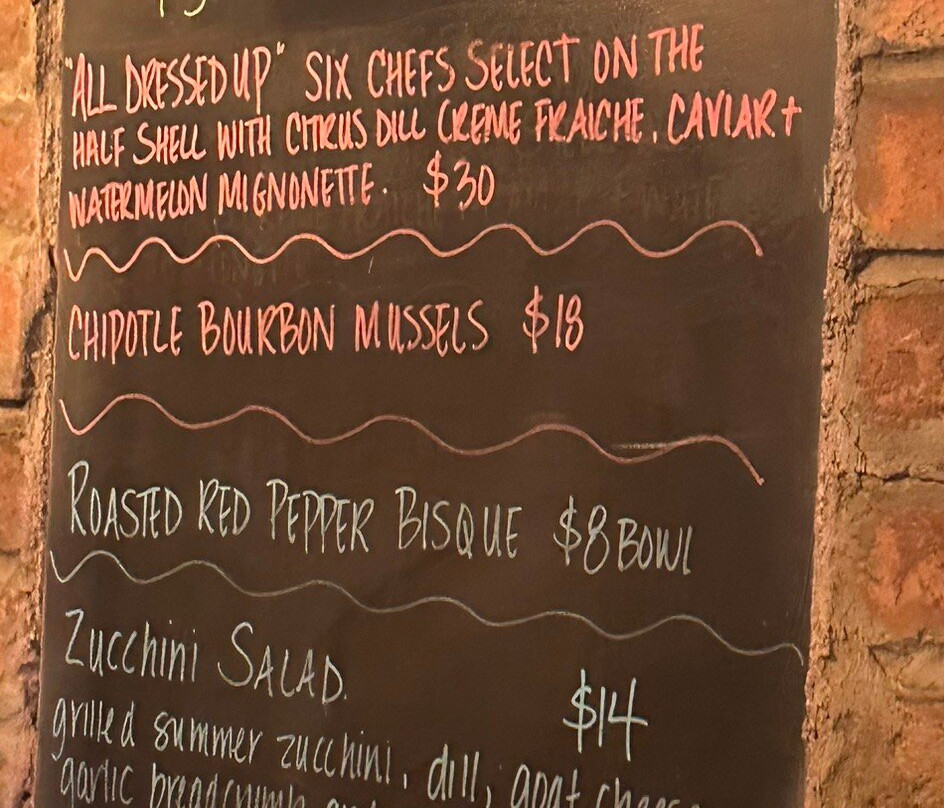 "ALL DRESSED UP" SIX CHEFS SELECT ON THE
HALF SHELL WITH CITRUS DILL CREME FRAICHE, CAVIAR +
WATERMELON MIGNONETTE. $30
CHIPOTLE BOURBON MUSSELS $18
ROASTED RED PEPPER BISQUE $8 BOWL
Zucchini SALAD.
$14
grilled summer zucchini, dill, goat cheese
garlic breadcrumb